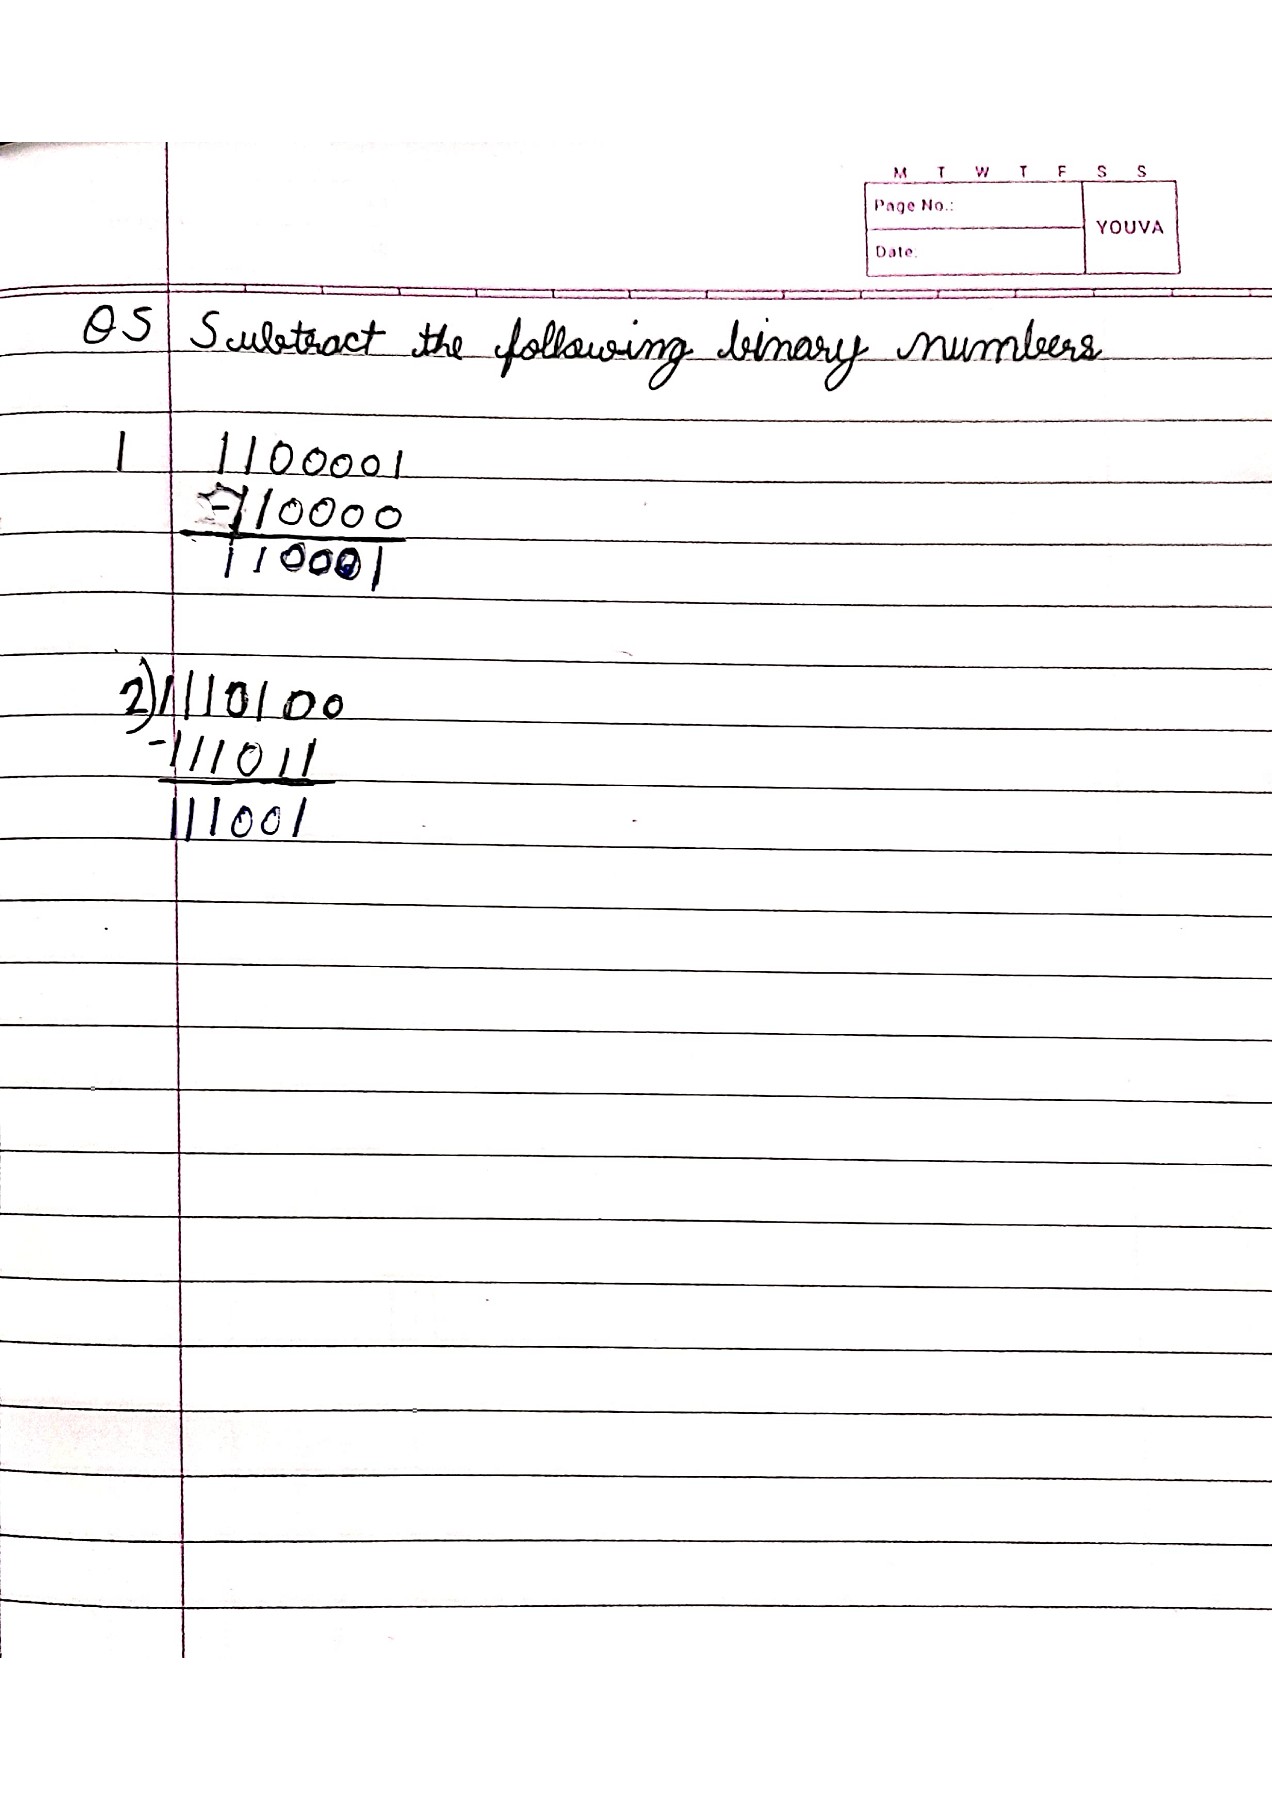 M T W T F S S
Page No.:
YOUVA
Date:
Q5 Subtract the following binary numbers
1 1100001
-110000
110001
2) 1110100
-111011
111001